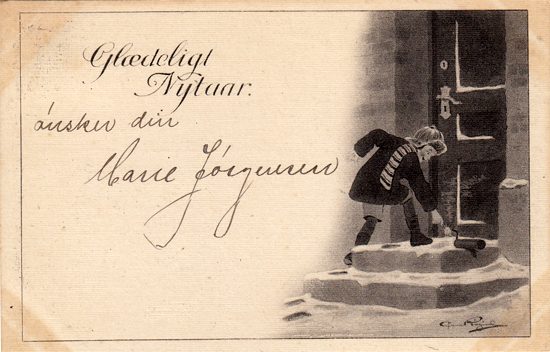 Glædeligt
Nytaar.
ønsker din
Marie Jørgensen